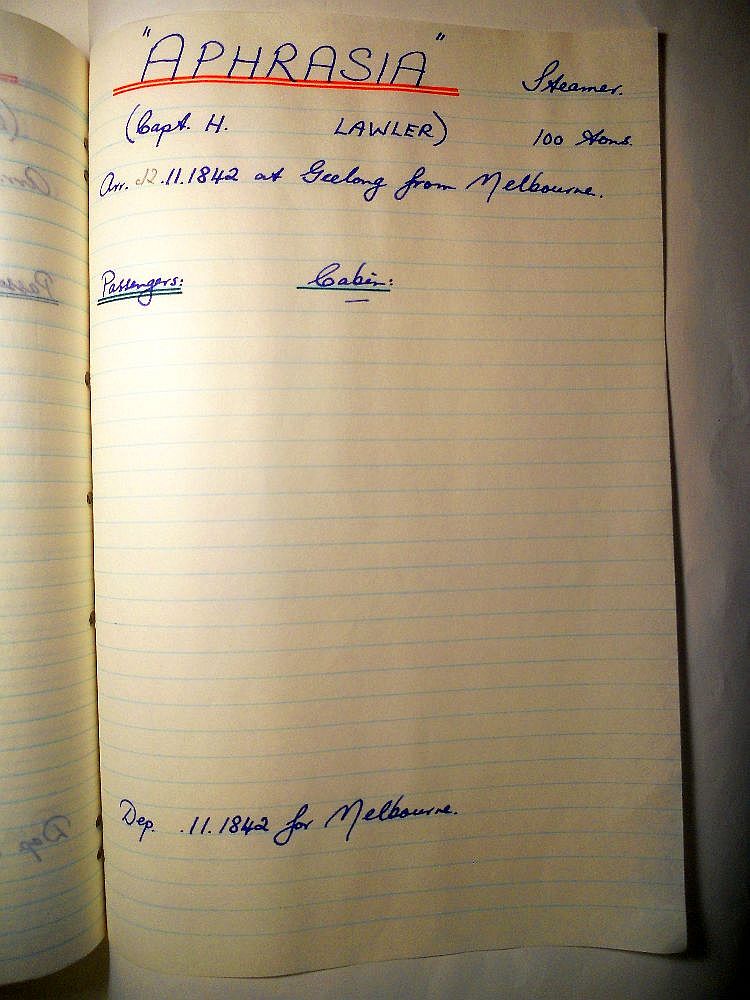 "APHRASIA" Steamer.
(Capt. H. LAWLER) 100 tons.
Arr. 12.11.1842 at Geelong from Melbourne.
Passengers: Cabin:
Dep. .11.1842 for Melbourne.